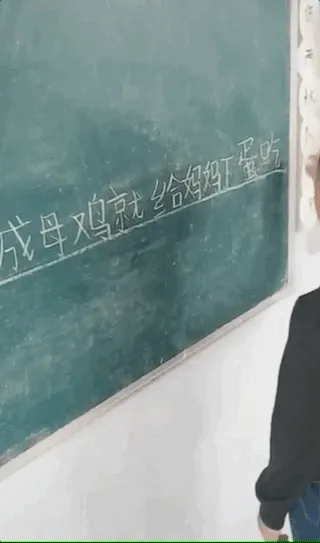 成母鸡就给妈妈下蛋吃